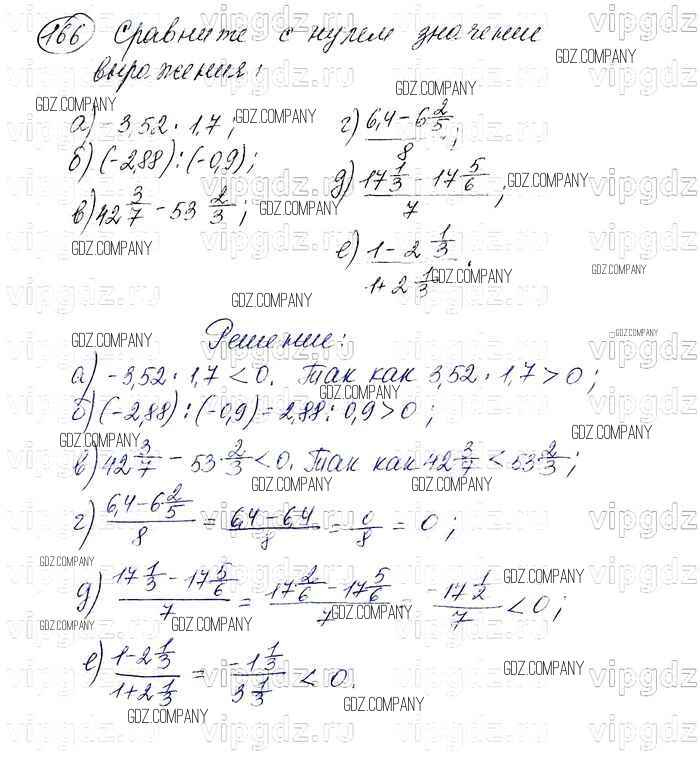 166 Сравните с нулем значение
выражения:
а) -3,52 · 1,7;
б) (-2,88) : (-0,9);
в) 42 3/7 - 53 2/3;
г) (6,4 - 6 2/5)/8;
д) (17 1/3 - 17 5/6)/7;
е) (1 - 2 1/3)/(1 + 2 1/3).
Решение:
а) -3,52 · 1,7 < 0. Так как 3,52 · 1,7 > 0;
б) (-2,88) : (-0,9) = 2,88 : 0,9 > 0;
в) 42 3/7 - 53 2/3 < 0. Так как 42 3/7 < 53 2/3;
г) (6,4 - 6 2/5)/8 = (6,4 - 6,4)/8 = 0/8 = 0;
д) (17 1/3 - 17 5/6)/7 = (17 2/6 - 17 5/6)/7 = (-17 1/2)/7 < 0;
е) (1 - 2 1/3)/(1 + 2 1/3) = (-1 1/3)/(3 1/3) < 0.
GDZ.COMPANY
vipgdz.ru